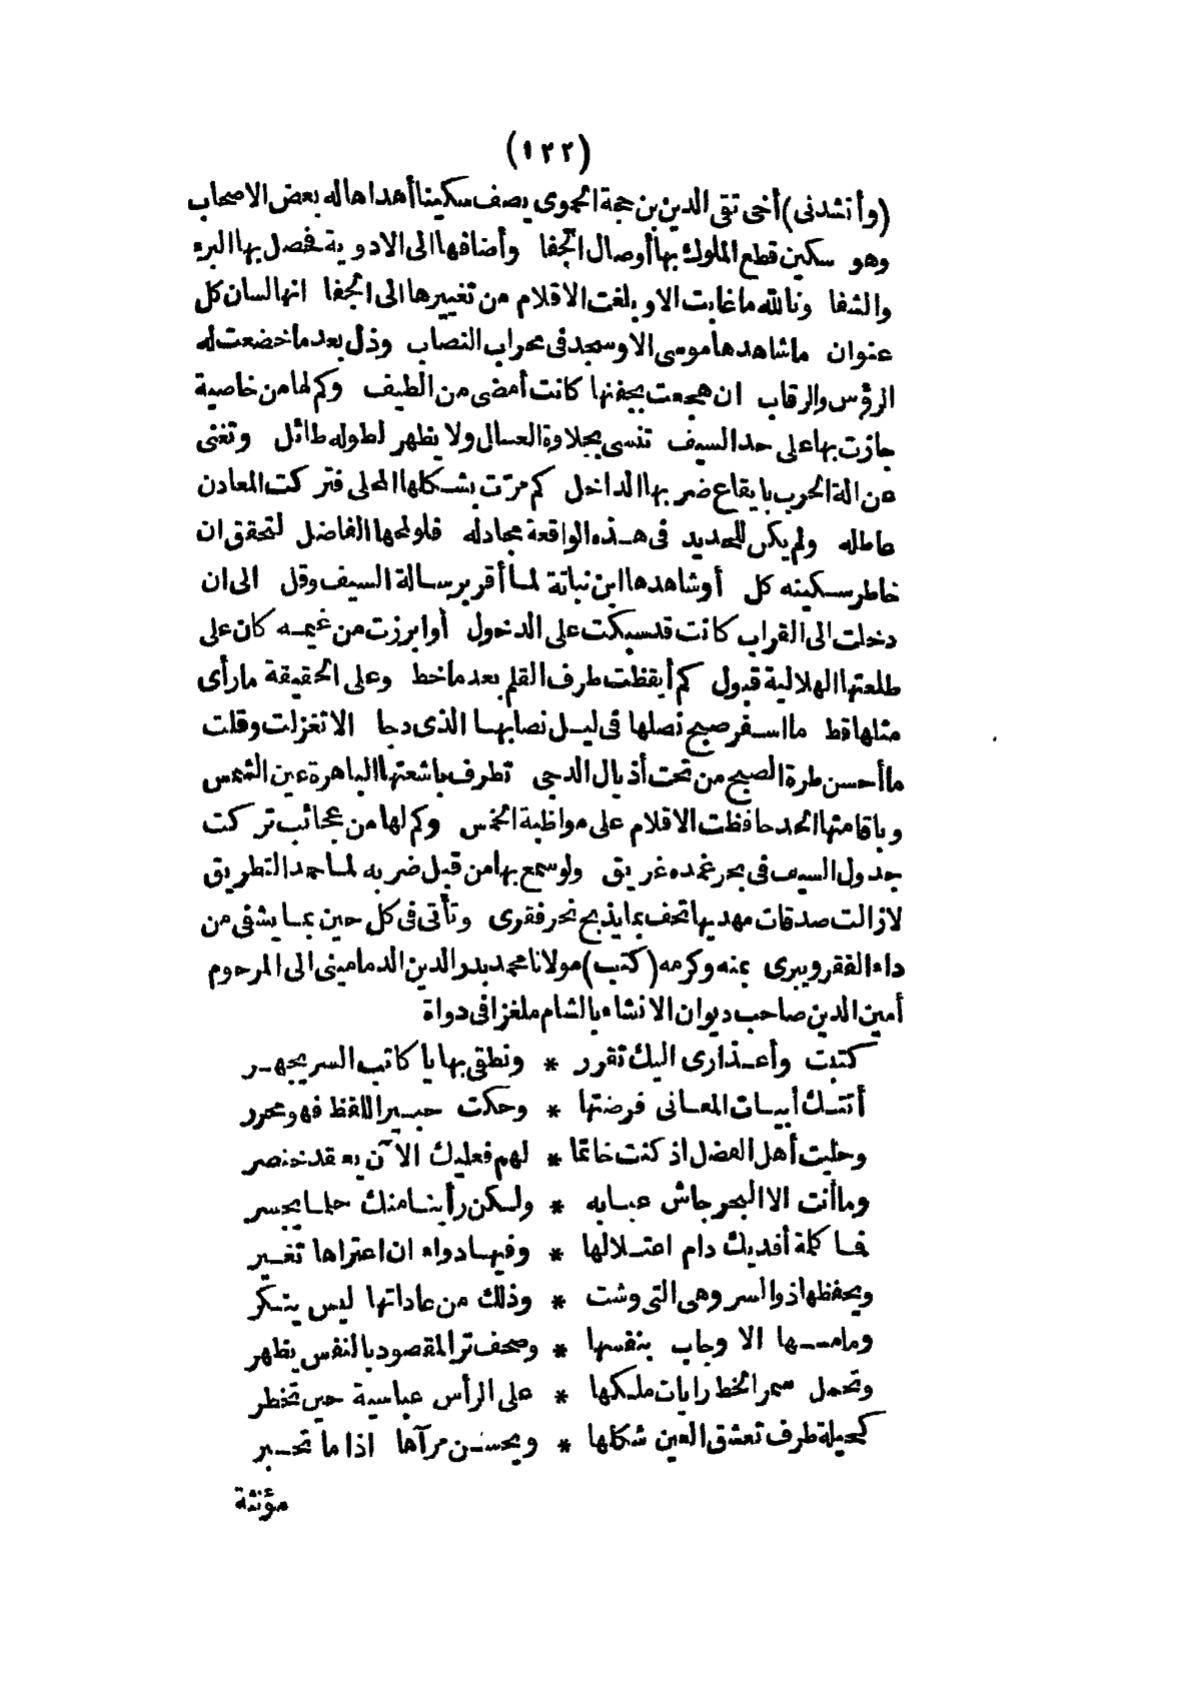 (١٢٢)
(وأنشدنى) أخى تقى الدين بن حجة الحموى يصف سكينا أهداها له بعض الاصحاب
وهو سكين قطع المملوك بها أوصال الجفا وأضافها الى الادوية فحصل بها البرء
والشفا وتالله ما غابت الا وبلغت الاقلام من تغييرها الى الجفا انها لسان كل
عنوان ما شاهدها موسى الا وسجد فى محراب النصاب وذل بعد ما خضعت له
الرؤس والرقاب ان هجعت بجفنها كانت أمضى من الطيف وكم لها من خاصية
جازت بها على حد السيف تنسى بحلاوة العسال ولا يظهر لطوله طائل وتغنى
عن الة الحرب بايقاع ضربها الداخل كم مرّت بشكلها المحلى فتركت المعادن
عاطله ولم يكن للحديد فى هذه الواقعة مجادله فلو لمحها الفاضل لتحقق ان
خاطر سكينه كل أو شاهدها ابن نباتة لما أقر برسالة السيف وقل الى ان
دخلت الى القراب كانت قد سبكت على الدخول أو ابرزت من غيمه كان على
طلعتها الهلالية قبول كم أيقظت طرف القلم بعد ما خط وعلى الحقيقة ما رأى
مثلها قط ما اسفر صبح نصلها فى ليل نصابها الذى دجا الا تغزلت وقلت
ما أحسن طرة الصبح من تحت أذيال الدجى تطرف باشعتها الباهرة عين الشمس
وباقامتها الحد حافظت الاقلام على مواظبة الخمس وكم لها من عجائب تركت
جدول السيف فى بحر غمده غريق ولو سمع بها من قبل ضربه لما حمد التطريق
لا زالت صدقات مهديها تحف بما يذبح نحر فقرى وتأتى فى كل حين بما يشفى من
داء الفقر ويبرى بمنه وكرمه (كتب) مولانا محمد بدر الدين الدمامينى الى المرحوم
أمين الدين صاحب ديوان الانشاء بالشام ملغزا فى دواة
كتبت وأعذارى اليك تقرر * ونطقى بها يا كاتب السر يجهر
أتتك أبيات المعانى فرضتها * وحكت حبير اللفظ فهو محرر
وحليت أهل الفضل اذ كنت خاتما * لهم فعليك الآن يعقد خنصر
وما أنت الا البحر جاش عبابه * ولكن رأينا منك حلما يجسر
فما كلة أفديك دام اعتلالها * وفيها دواء ان اعتراها تغير
ويحفظها ذو السر وهى التى وشت * وذلك من عاداتها ليس ينكر
وما مسها الا وجاب بنفسها * وصحف تر المقصود بالنفس يظهر
وتحمل سمر الخط رايات ملكها * على الرأس عباسية حين تخطر
كحيلة طرف تعشق العين شكلها * ويحسن مرآها اذا ما تحبر
مؤنثة